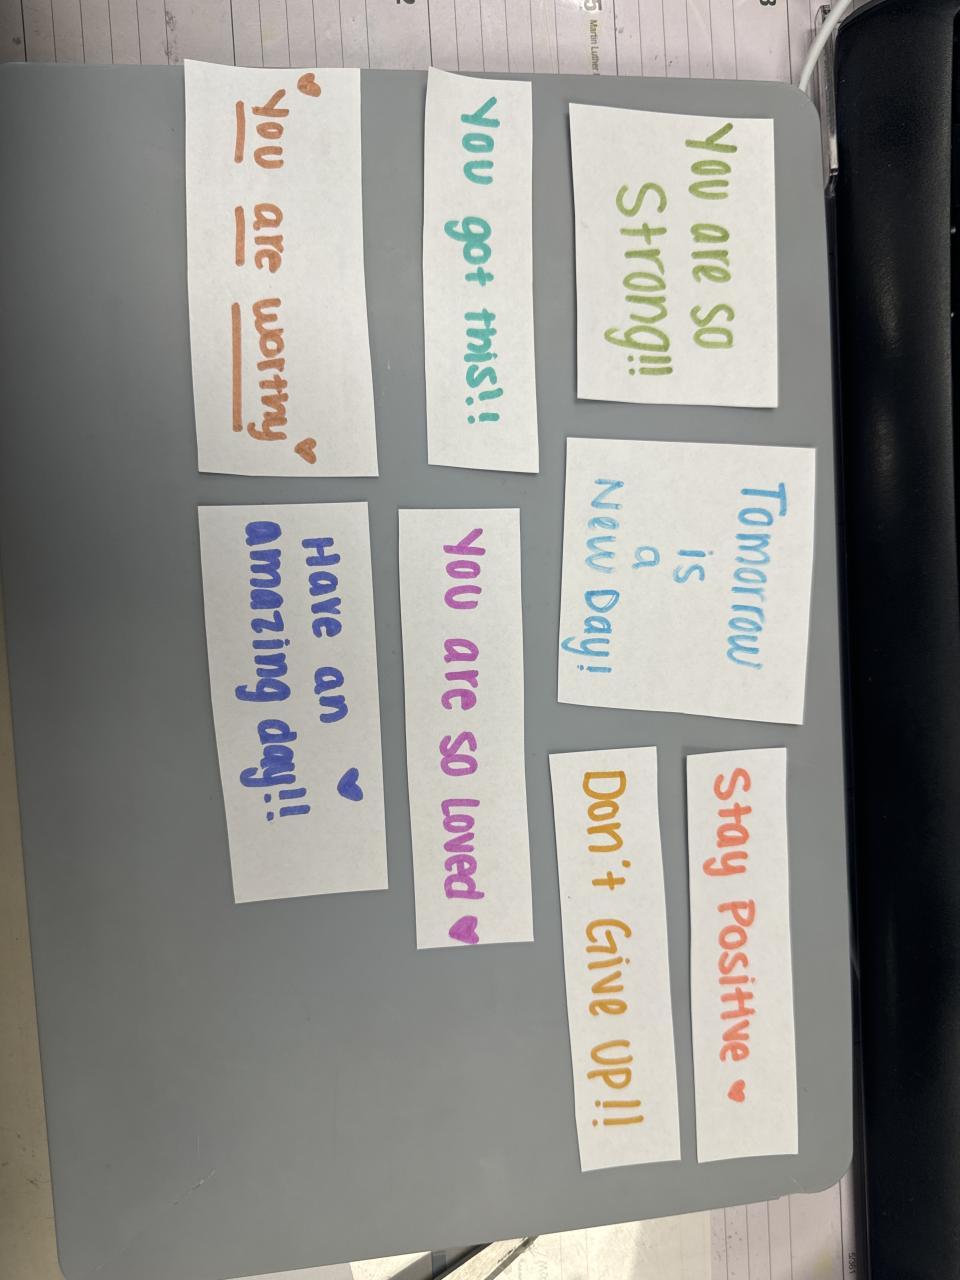 You are so
Strong!!
Tomorrow
is
a
New Day!
Stay Positive
Don't Give UP!!
You got this!!
You are so Loved
You are worthy
Have an
amazing day!!
Martin Luther